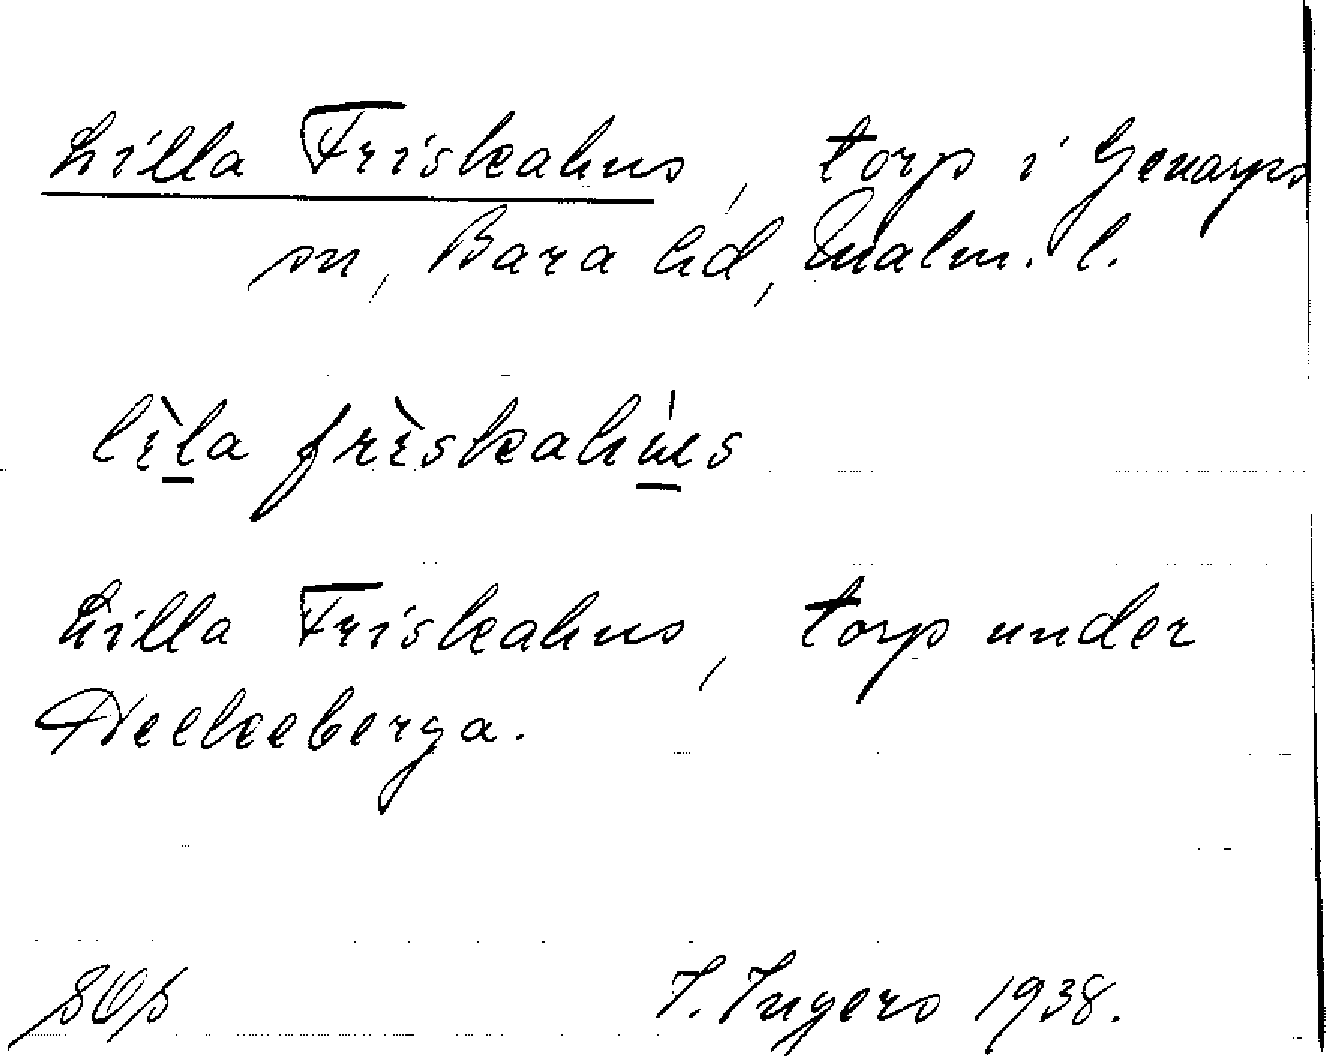 Lilla Friskahus, torp i Genarps
sn, Bara hd, Malm. l.
lìla frìskahús
Lilla Friskahus, torp under
Heckeberga.
I. Ingers 1938.